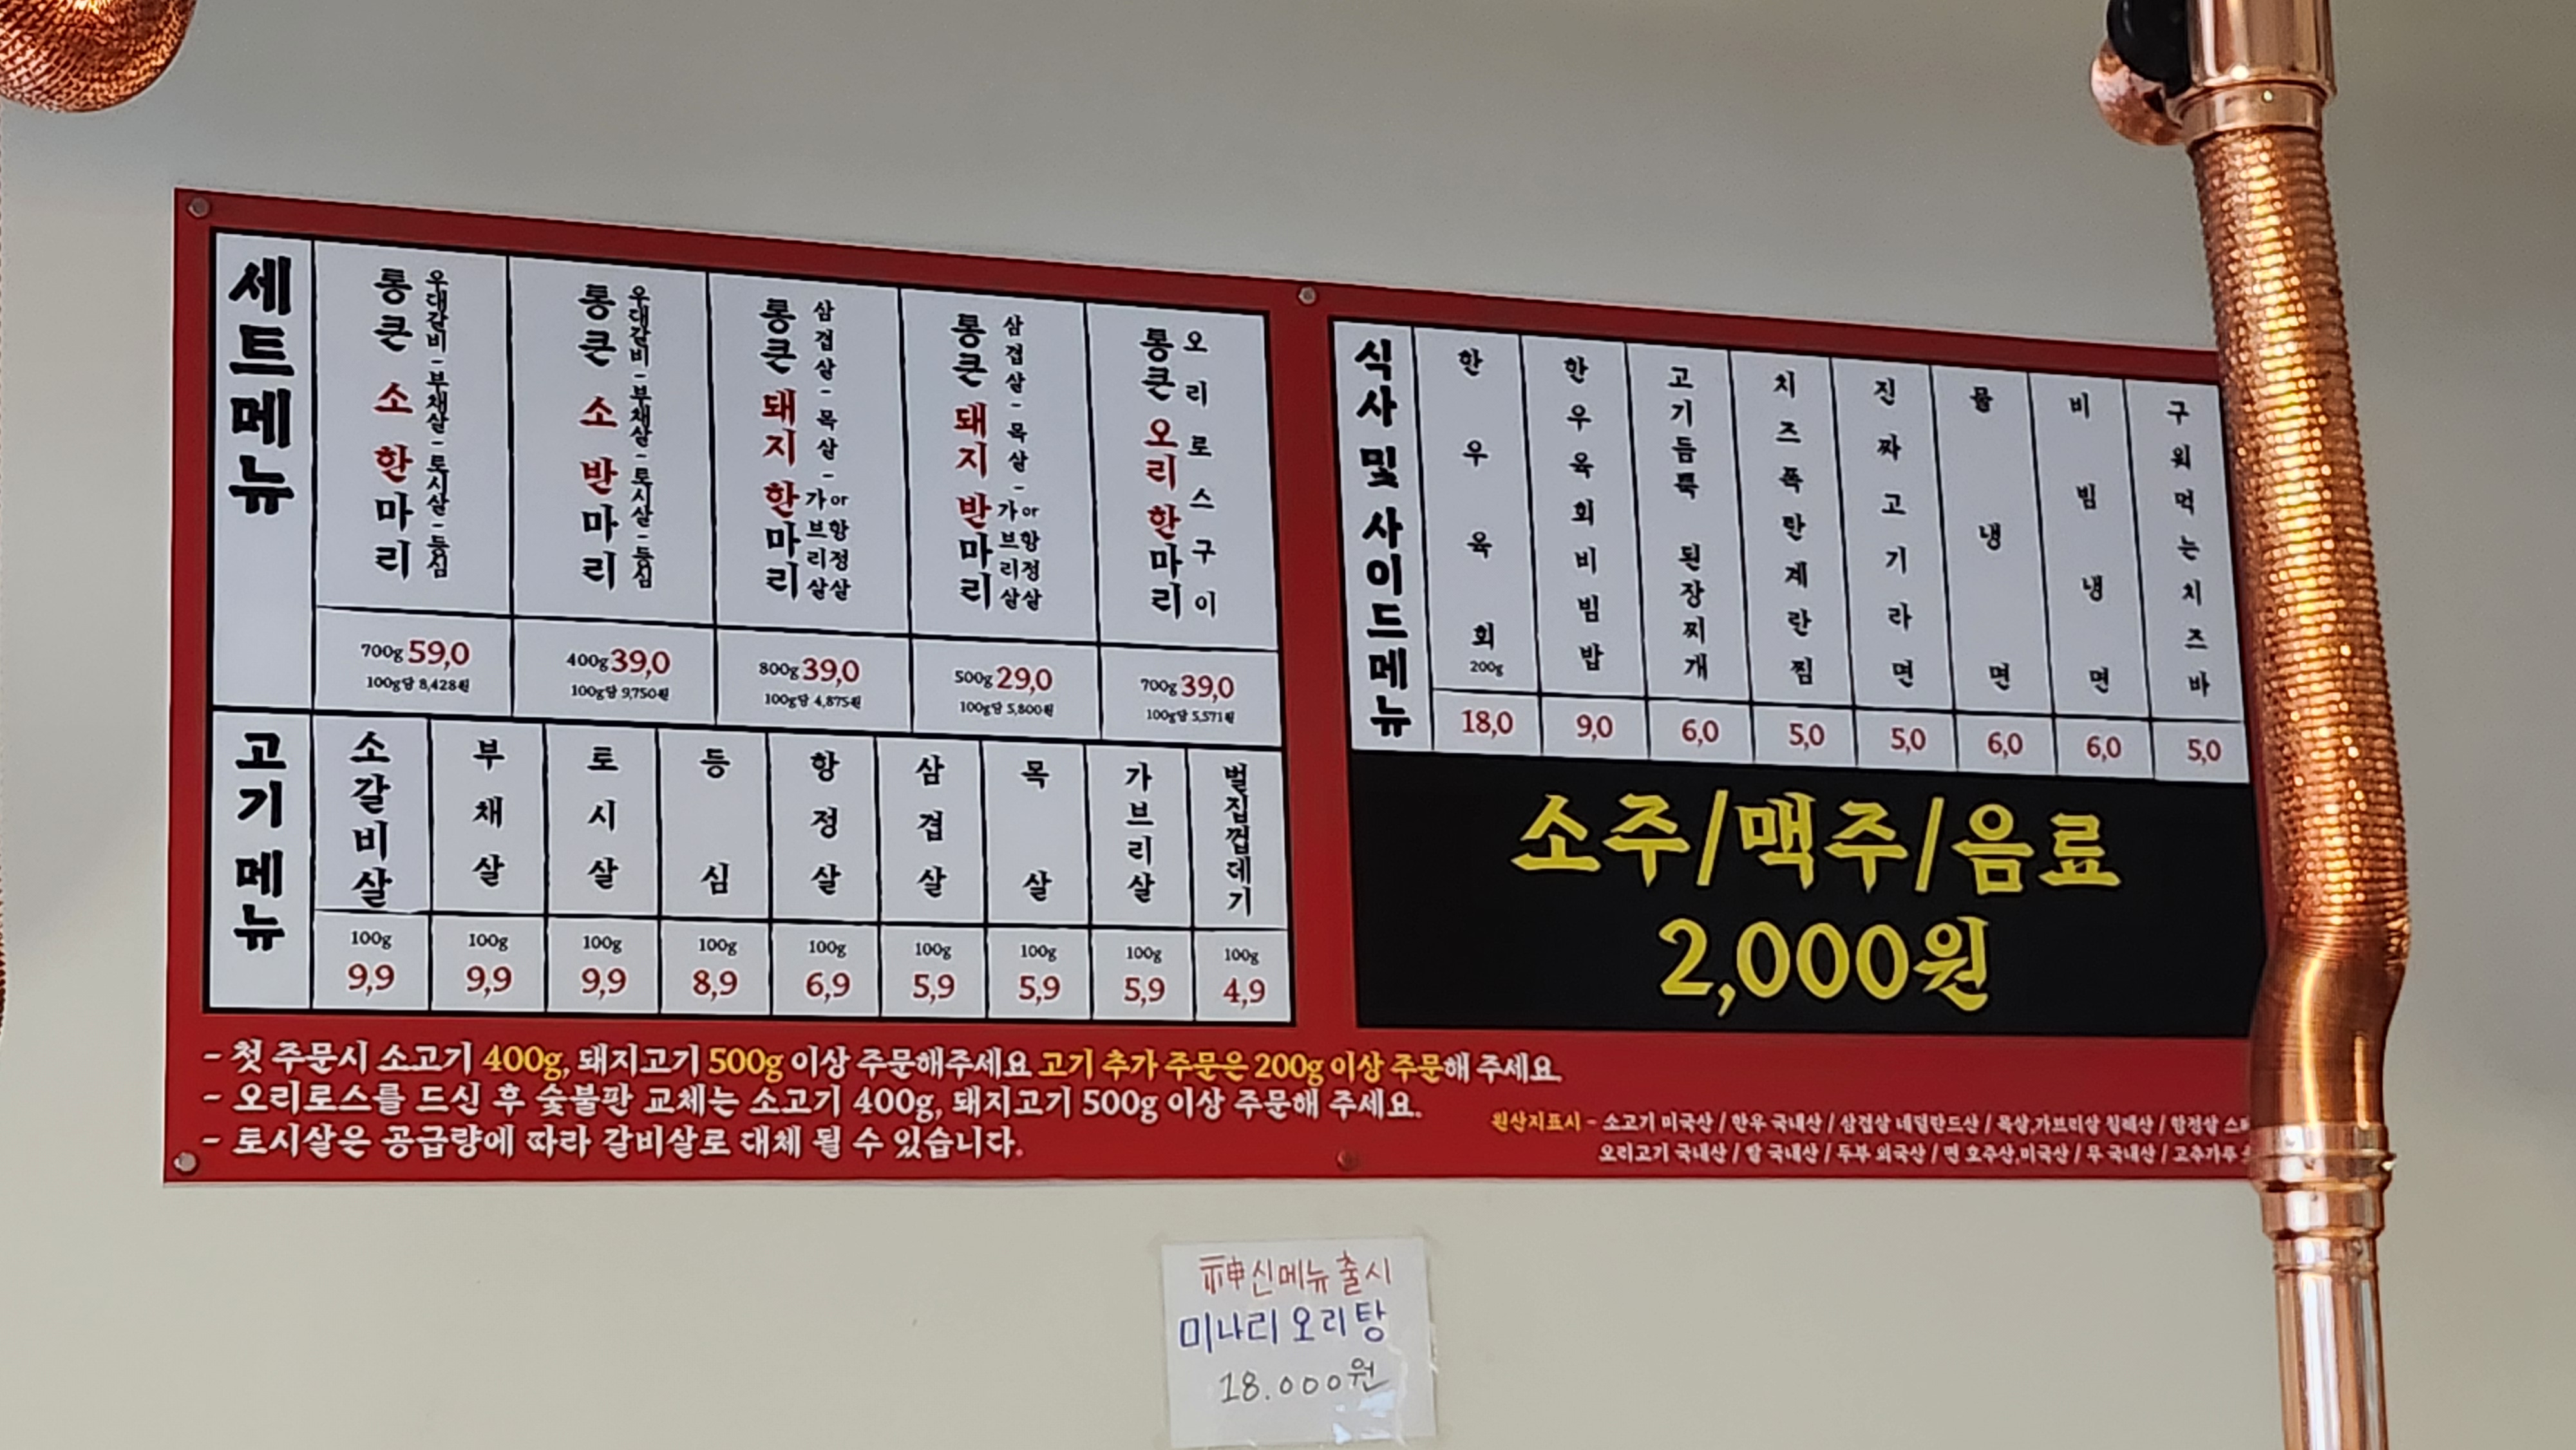 세트메뉴
통큰 소 한마리
우대갈비-부채살-토시살-등심
700g 59,0
100g당 8,428원
통큰 소 반마리
우대갈비-부채살-토시살-등심
400g 39,0
100g당 9,750원
통큰 돼지 한마리
삼겹살-목살-가브리살 or 항정살
800g 39,0
100g당 4,875원
통큰 돼지 반마리
삼겹살-목살-가브리살 or 항정살
500g 29,0
100g당 5,800원
통큰 오리 한마리
오리로스구이
700g 39,0
100g당 5,571원
고기메뉴
소갈비살
100g
9,9
부채살
100g
9,9
토시살
100g
9,9
등심
100g
8,9
항정살
100g
6,9
삼겹살
100g
5,9
목살
100g
5,9
가브리살
100g
5,9
벌집껍데기
100g
4,9
식사 및 사이드메뉴
한우육회
200g
18,0
한우육회비빔밥
9,0
고기듬뿍 된장찌개
6,0
치즈폭탄계란찜
5,0
진짜고기라면
5,0
물냉면
6,0
비빔냉면
6,0
구워먹는치즈바
5,0
소주/맥주/음료
2,000원
- 첫 주문시 소고기 400g, 돼지고기 500g 이상 주문해주세요 고기 추가 주문은 200g 이상 주문해 주세요.
- 오리로스를 드신 후 숯불판 교체는 소고기 400g, 돼지고기 500g 이상 주문해 주세요.
- 토시살은 공급량에 따라 갈비살로 대체 될 수 있습니다.
원산지표시 - 소고기 미국산 / 한우 국내산 / 삼겹살 네덜란드산 / 목살,가브리살 칠레산 / 항정살
오리고기 국내산 / 쌀 국내산 / 두부 외국산 / 면 호주산,미국산 / 무 국내산 / 고추가루
神신메뉴출시
미나리오리탕
18.000원